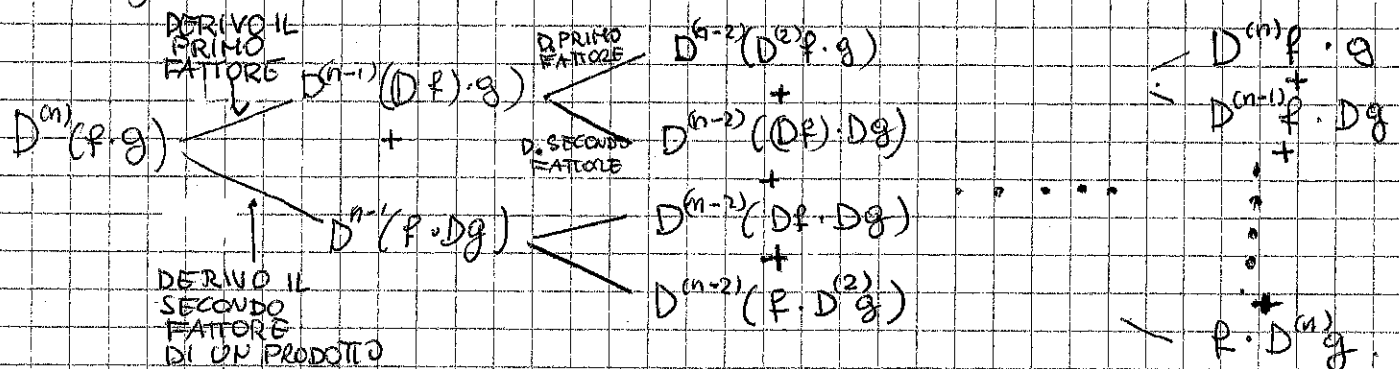 DERIVO IL
PRIMO
FATTORE
D^(n)(f·g)
D^(n-1)((Df)·g)
+
D^n-1(f·Dg)
DERIVO IL
SECONDO
FATTORE
DI UN PRODOTTO
D.PRIMO
FATTORE
D. SECONDO
FATTORE
D^(n-2)(D^(2)f·g)
+
D^(n-2)((Df)·Dg)
+
D^(n-2)(Df·Dg)
+
D^(n-2)(f·D^(2)g)
.....
D^(n)f·g
+
D^(n-1)f·Dg
+
.....
+
f·D^(n)g.